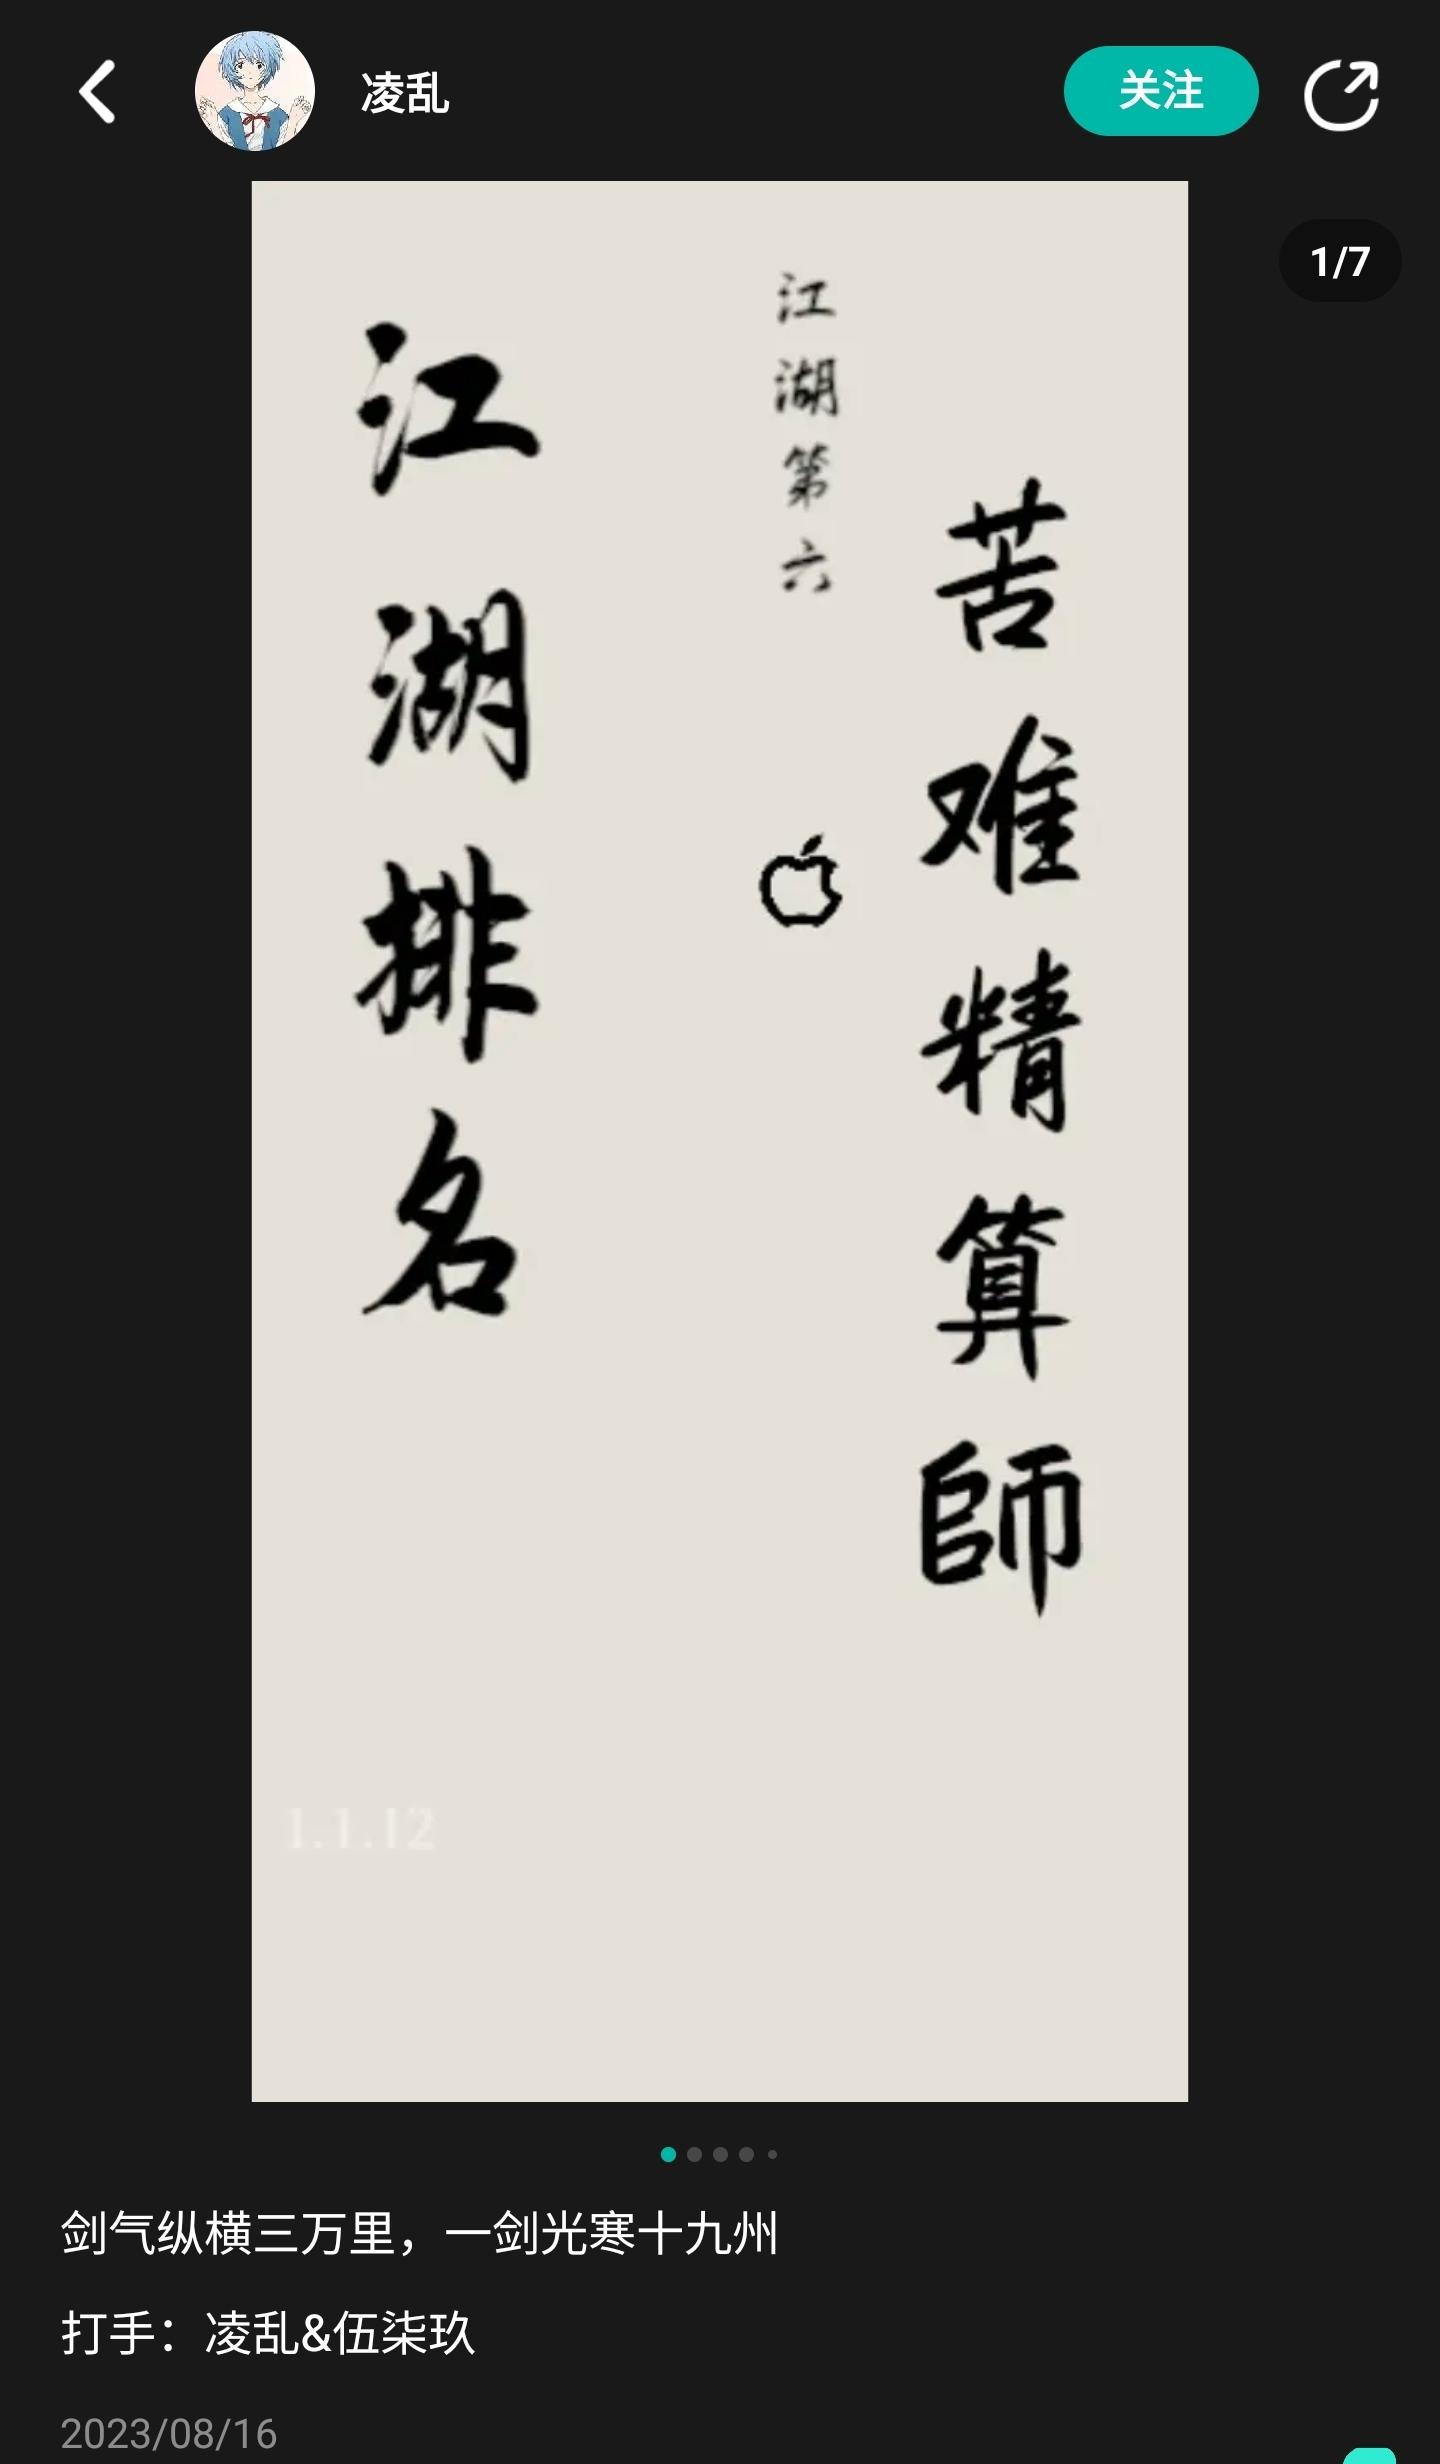 凌乱
关注
1/7
苦难精算師
江湖第六
江湖排名
1.1.12
剑气纵横三万里，一剑光寒十九州
打手：凌乱&伍柒玖
2023/08/16